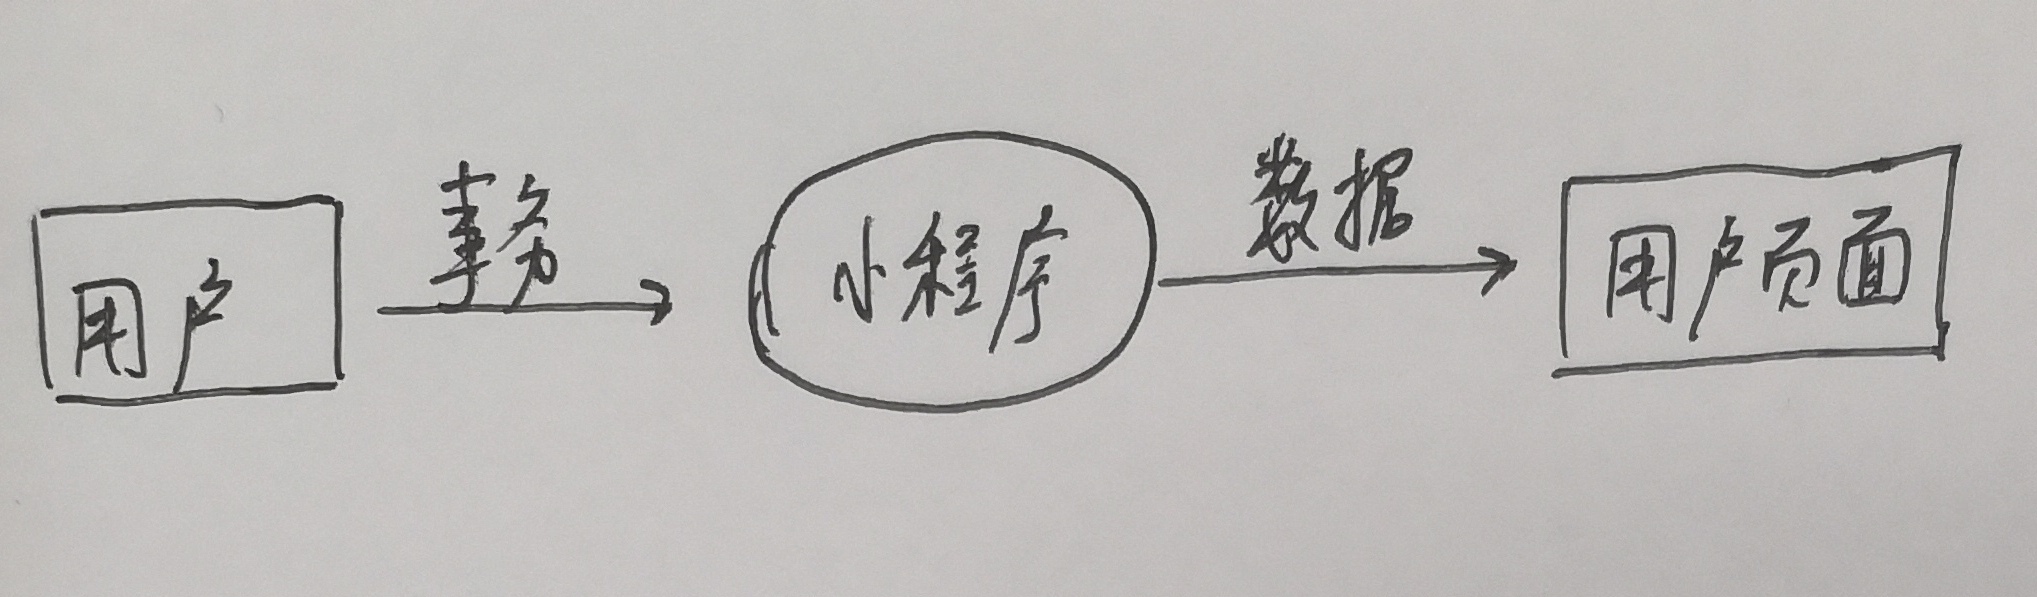 用户
事务
小程序
数据
用户页面